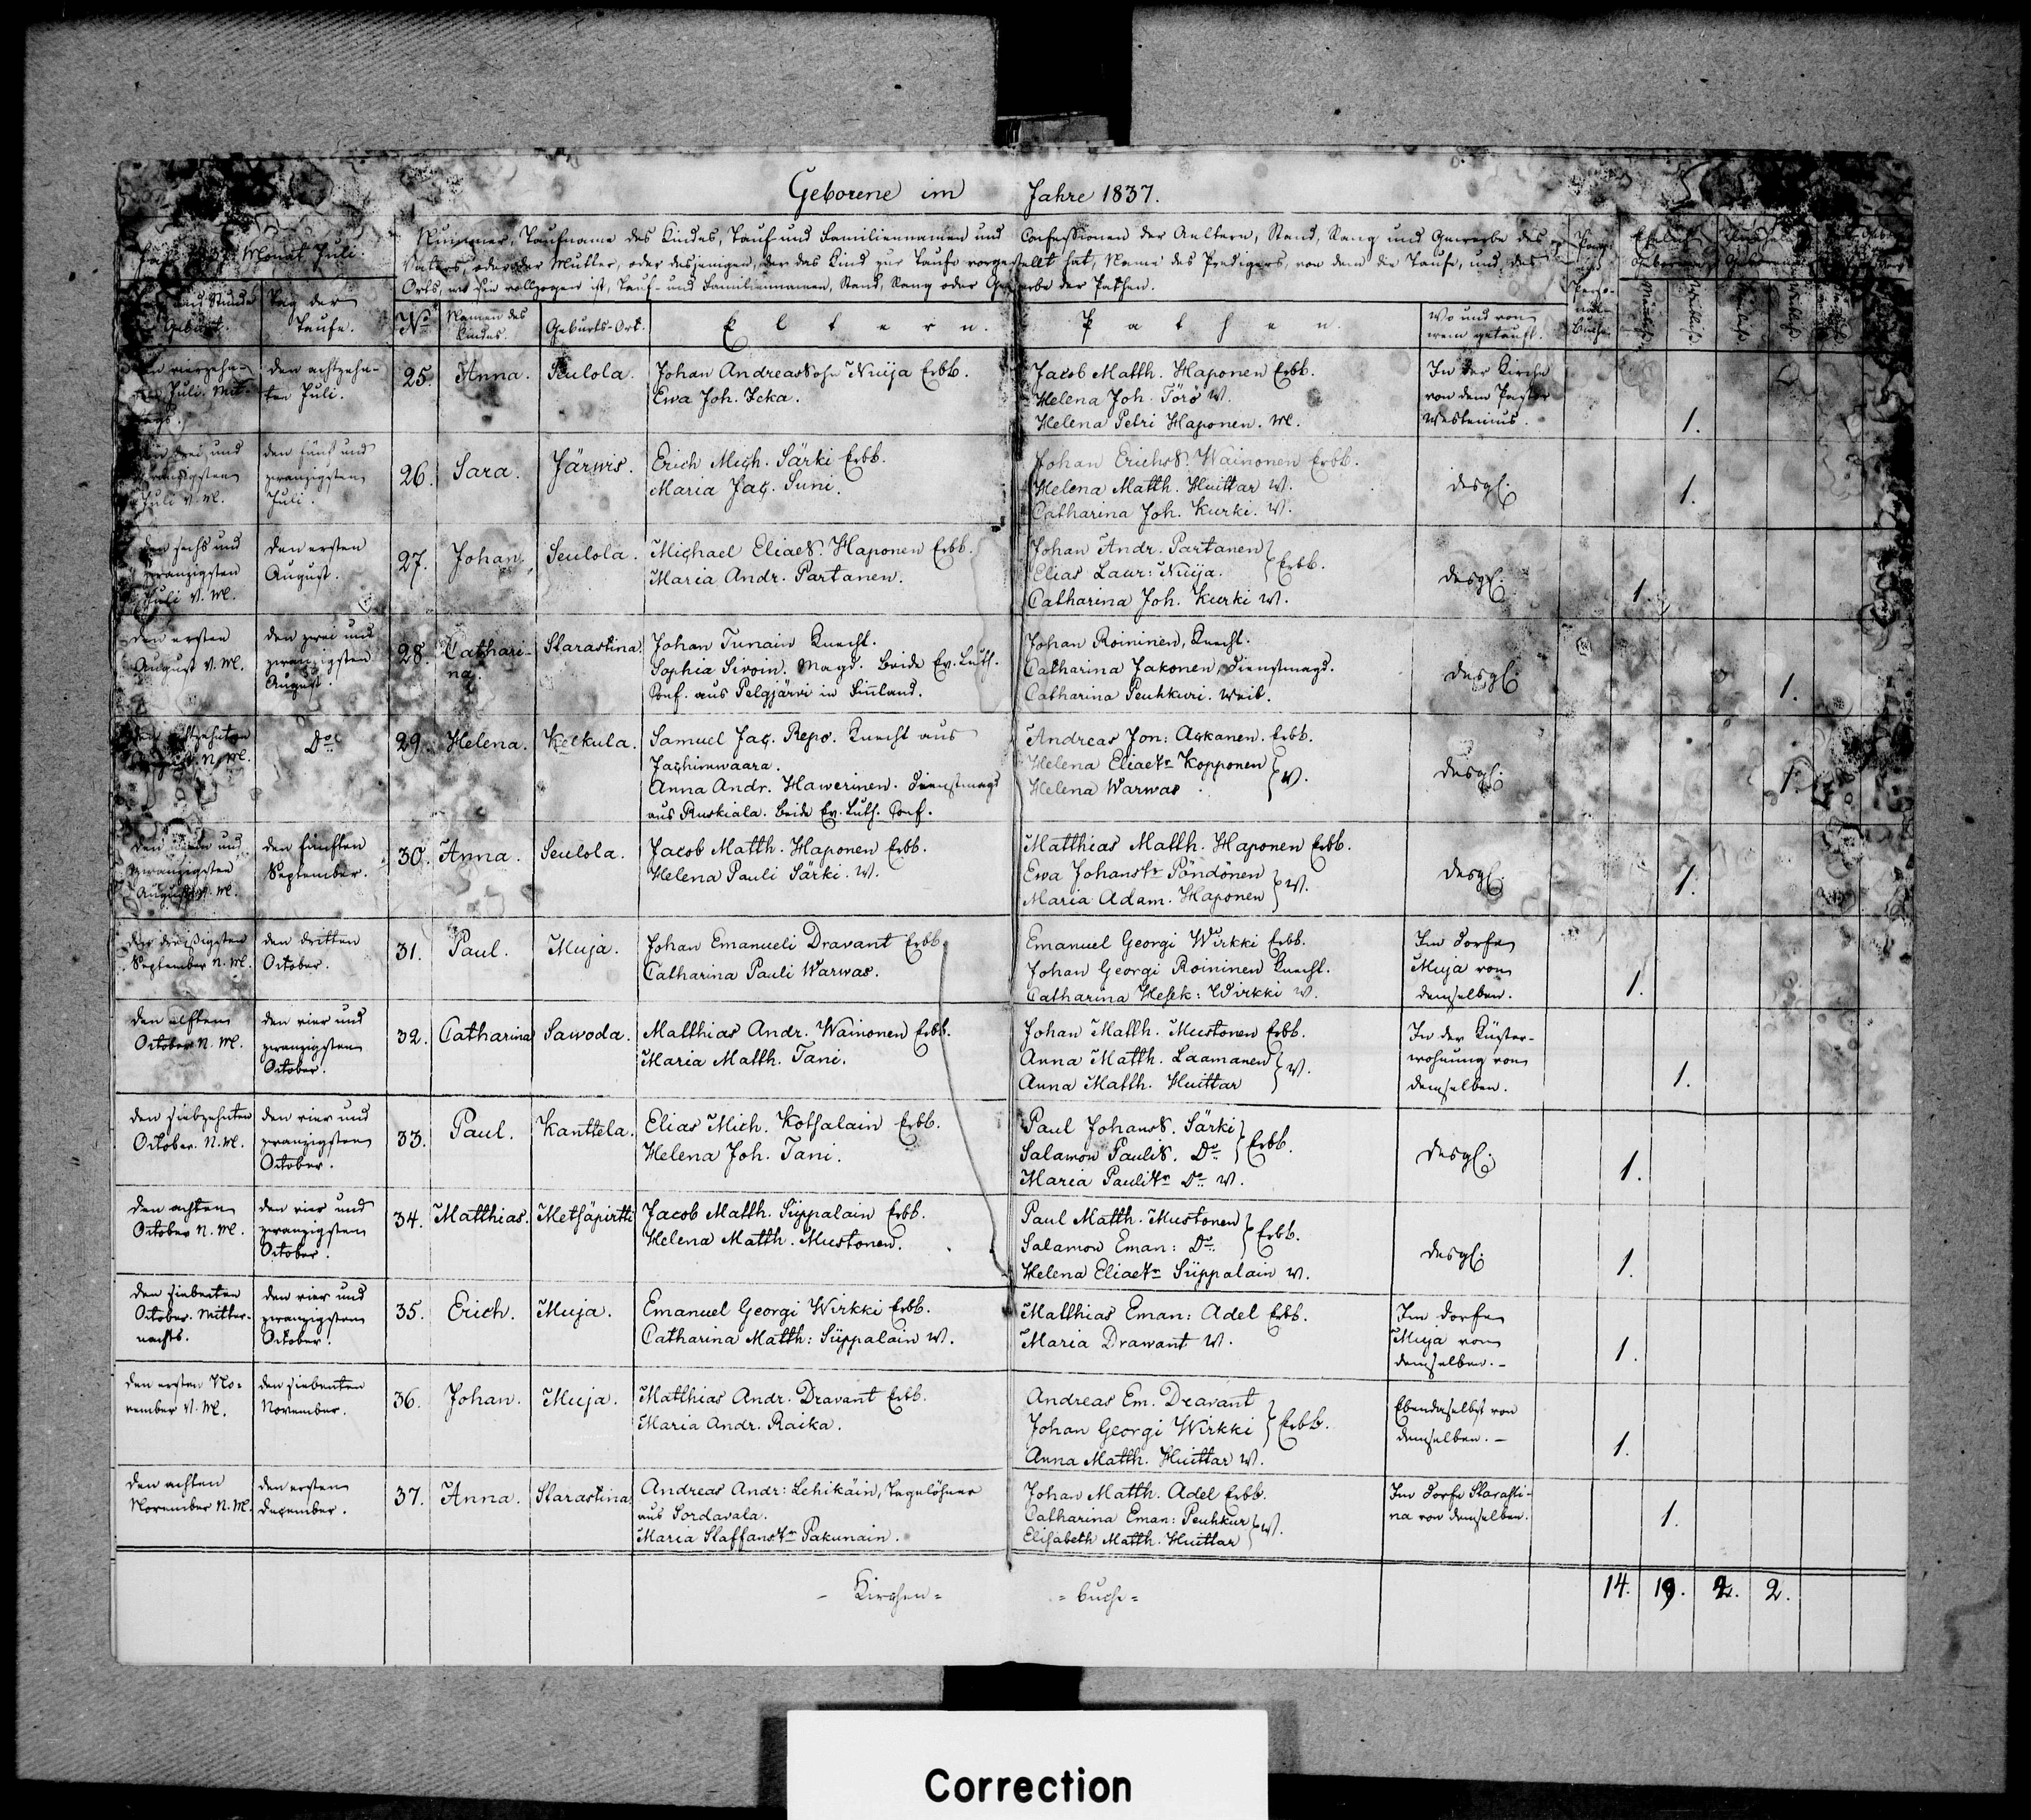 Geborene im Jahre 1837.
Monat Juli.
Nummer, Taufname des Kindes, Tauf- und Familiennamen und Confessionen der Aeltern, Stand, Rang und Gewerbe des
Vaters, oder der Mutter, oder desjenigen, der das Kind zur Taufe vorgestellt hat, Name des Predigers, von dem die Taufe, und des
Orts, wo sie vollzogen ist, Tauf- und Familiennamen, Stand, Rang oder Gewerbe der Pathen.
und Stunde der Geburt.
Tag der Taufe.
No
Namen des Kindes.
Geburts-Ort.
Eltern.
Pathen.
Wo und von wem getauft.
Männlich.
Weiblich.
den vierzehnten Juli. Mittags.
den achtzehnten Juli.
25. Anna. Seulola.
Johan Andreas Sohn Nuija Erbb.
Ewa Joh. Icka.
Jacob Matth. Haponen Erbb.
Helena Joh. Törö W.
Helena Petri Haponen. M.
In der Kirche
von dem Pastor
Westenius.
1.
den drei und
zwanzigsten
Juli V. M.
den fünf und
zwanzigsten
Juli.
26. Sara. Järwis.
Erich Mich. Särki Erbb.
Maria Jac. Suni.
Johan Erichs S. Wainonen Erbb.
Helena Matth. Huittar W.
Catharina Joh. Kurki. W.
desgl.
1.
den sechs und
zwanzigsten
Juli V. M.
den ersten
August.
27. Johan. Seulola.
Michael Eliae S. Haponen Erbb.
Maria Andr. Partanen.
Johan Andr. Partanen
Elias Laur: Nuija. } Erbb.
Catharina Joh. Kurki W.
desgl.
1.
den ersten
August V. M.
den zwei und
zwanzigsten
August.
28. Catharina. Starastina.
Johan Tunain Knecht.
Sophia Sivoin. Magd. Beide Ev. Luth.
Conf. aus Pelgjärvi in Finland.
Johan Roininen, Knecht.
Catharina Jakonen, Dienstmagd.
Catharina Peuhkuri. Weib.
desgl.
1.
August. N. M.
Do
29. Helena. Kelkula.
Samuel Jac. Repo. Knecht aus
Jachimwaara.
Anna Andr. Hawerinen. Dienstmagd
aus Ruskiala. Beide Ev. Luth. Conf.
Andreas Jon: Askanen. Erbb.
Helena Eliae Tr Kopponen
Helena Warwas } W.
desgl.
1.
den und
zwanzigsten
August V. M.
den fünften
September.
30. Anna. Seulola.
Jacob Matth. Haponen Erbb.
Helena Pauli Särki. W.
Matthias Matth. Haponen Erbb.
Ewa Johans Tr Pöndönen
Maria Adam. Haponen } W.
desgl.
1.
den dreißigsten
September N. M.
den dritten
October.
31. Paul. Muja.
Johan Emanueli Dravant Erbb.
Catharina Pauli Warwas.
Emanuel Georgi Wirkki Erbb.
Johan Georgi Roininen Knecht.
Catharina Hesek: Wirkki W.
Im Dorfe
Muja von
demselben.
1.
den elften
October N. M.
den vier und
zwanzigsten
October.
32. Catharina Sawoda.
Matthias Andr. Wainonen Erbb.
Maria Matth. Tani.
Johan Matth. Mustonen Erbb.
Anna Matth. Laamanen
Anna Matth. Huittar } W.
In der Küster-
wohnung von
demselben.
1.
den siebzehnten
October. N. M.
den vier und
zwanzigsten
October.
33. Paul. Kanttela.
Elias Mich. Kotsalain Erbb.
Helena Joh. Tani.
Paul Johans S. Särki
Salamon Pauli S. Do } Erbb.
Maria Pauli Tr Do W.
desgl.
1.
den achten
October N. M.
den vier und
zwanzigsten
October.
34. Matthias. Metsäpirtti
Jacob Matth. Süppalain Erbb.
Helena Matth. Mustonen.
Paul Matth. Mustonen
Salamon Eman: Do } Erbb.
Helena Eliae Tr Süppalain W.
desgl.
1.
den siebenten
October. Mitter-
nachts.
den vier und
zwanzigsten
October.
35. Erich. Muja.
Emanuel Georgi Wirkki Erbb.
Catharina Matth: Süppalain W.
Matthias Eman: Adel Erbb.
Maria Drawant W.
Im Dorfe
Muja von
demselben.–
1.
den ersten No-
vember V. M.
den siebenten
November.
36. Johan. Muja.
Matthias Andr. Dravant Erbb.
Maria Andr. Raika.
Andreas Em. Dravant
Johan Georgi Wirkki } Erbb.
Anna Matth. Huittar W.
Ebendaselbst von
demselben.–
1.
den achten
November N. M.
den ersten
December.
37. Anna. Starastina
Andreas Andr: Lehikäin, Tagelöhner
aus Sordavala.
Maria Staffans Tr Pakunain.
Johan Matth. Adel Erbb.
Catharina Eman: Peuhkur
Elisabeth Matth. Huittar } W.
Im Dorfe Starasti-
na von demselben.
1.
– Kirchen = = buch =
14. 19. 2. 2.
Correction